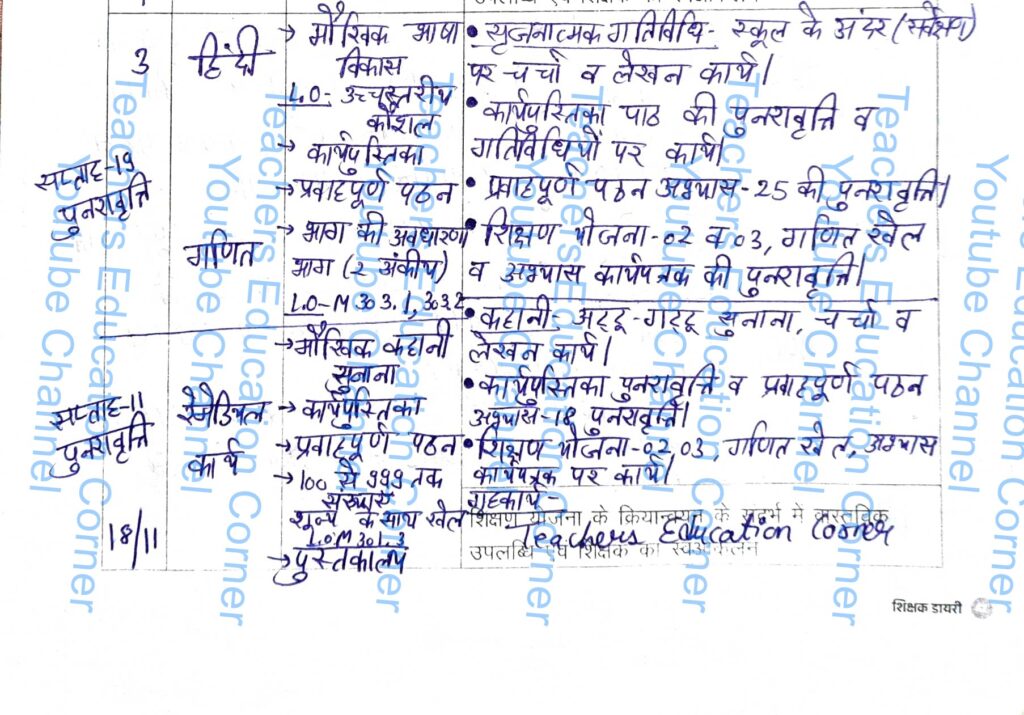 3 हिंदी → मौखिक भाषा विकास
L.O- उच्चस्तरीय कौशल
→ कार्यपुस्तिका
→ प्रवाहपूर्ण पठन
• सृजनात्मक गतिविधि- स्कूल के अंदर (सर्वेक्षण)
पर चर्चा व लेखन कार्य।
• कार्यपुस्तिका पाठ की पुनरावृत्ति व
गतिविधियों पर कार्य।
• प्रवाहपूर्ण पठन अभ्यास-25 की पुनरावृत्ति।
सप्ताह-19
पुनरावृत्ति
गणित
→ भाग की अवधारणा
भाग (2 अंकीय)
L.O-M 303.1, 303.2
• शिक्षण योजना-02 व 03, गणित खेल
व अभ्यास कार्यपत्रक की पुनरावृत्ति।
सप्ताह-11
पुनरावृत्ति
रेमेडियल
कार्य
→ मौखिक कहानी
सुनाना
→ कार्यपुस्तिका
→ प्रवाहपूर्ण पठन
→ 100 से 999 तक
संख्याएँ
शून्य के साथ खेल
L.O.M 301.3
→ पुस्तकालय
• कहानी- अट्टू-गट्टू सुनाना, चर्चा व
लेखन कार्य।
• कार्यपुस्तिका पुनरावृत्ति व प्रवाहपूर्ण पठन
अभ्यास-18 पुनरावृत्ति।
• शिक्षण योजना-02,03, गणित खेल, अभ्यास
कार्यपत्रक पर कार्य।
गृहकार्य-
शिक्षण योजना के क्रियान्वयन के संदर्भ में वास्तविक
Teachers Education Corner
उपलब्धि एवं शिक्षक का स्वआकलन
18/11
शिक्षक डायरी
Teachers Education Corner
Youtube Channel
Teachers Education Corner
Youtube Channel
Teachers Education Corner
Youtube Channel
Teachers Education Corner
Youtube Channel